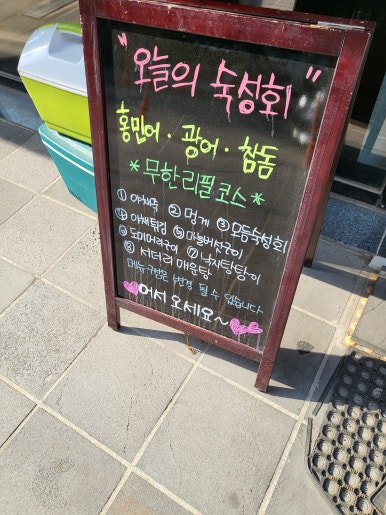 "오늘의 숙성회"
홍민어 · 광어 · 참돔
*무한리필코스*
① 야채죽 ② 멍게 ③ 모듬숙성회
④ 야채튀김 ⑤ 마늘버섯구이
⑥ 도미머리구이 ⑦ 낙지탕탕이
⑧ 서더리 매운탕
메뉴 구성은 변경 될 수 있습니다
어서 오세요~